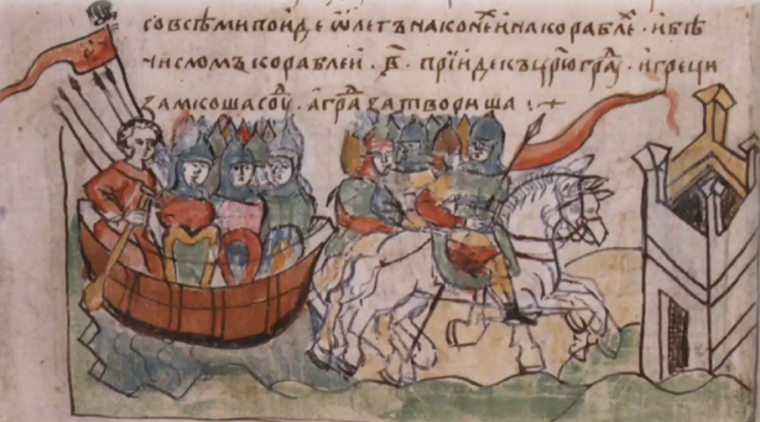 совсѣмипоиде ѡлегънаконехинакорабле · ибѣ
числомъкораблеи · в҃ · прїидекъцрюграⷣ · игреци
замкошасоуⷣ · аграⷣзатвориша :·